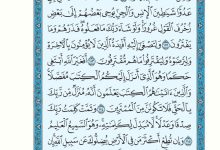 عَدُوًّا شَيَٰطِينَ ٱلْإِنسِ وَٱلْجِنِّ يُوحِى بَعْضُهُمْ إِلَىٰ بَعْضٍ
زُخْرُفَ ٱلْقَوْلِ غُرُورًا وَلَوْ شَآءَ رَبُّكَ مَا فَعَلُوهُ فَذَرْهُمْ وَمَا
يَفْتَرُونَ وَلِتَصْغَىٰٓ إِلَيْهِ أَفْـِٔدَةُ ٱلَّذِينَ لَا يُؤْمِنُونَ بِٱلْءَاخِرَةِ
وَلِيَرْضَوْهُ وَلِيَقْتَرِفُوا۟ مَا هُم مُّقْتَرِفُونَ أَفَغَيْرَ ٱللَّهِ أَبْتَغِى
حَكَمًا وَهُوَ ٱلَّذِىٓ أَنزَلَ إِلَيْكُمُ ٱلْكِتَٰبَ مُفَصَّلًا
وَٱلَّذِينَ ءَاتَيْنَٰهُمُ ٱلْكِتَٰبَ يَعْلَمُونَ أَنَّهُۥ مُنَزَّلٌ مِّن رَّبِّكَ
بِٱلْحَقِّ فَلَا تَكُونَنَّ مِنَ ٱلْمُمْتَرِينَ وَتَمَّتْ كَلِمَتُ رَبِّكَ
صِدْقًا وَعَدْلًا لَّا مُبَدِّلَ لِكَلِمَٰتِهِۦ وَهُوَ ٱلسَّمِيعُ ٱلْعَلِيمُ
وَإِن تُطِعْ أَكْثَرَ مَن فِى ٱلْأَرْضِ يُضِلُّوكَ عَن سَبِيلِ ٱللَّهِ إِن